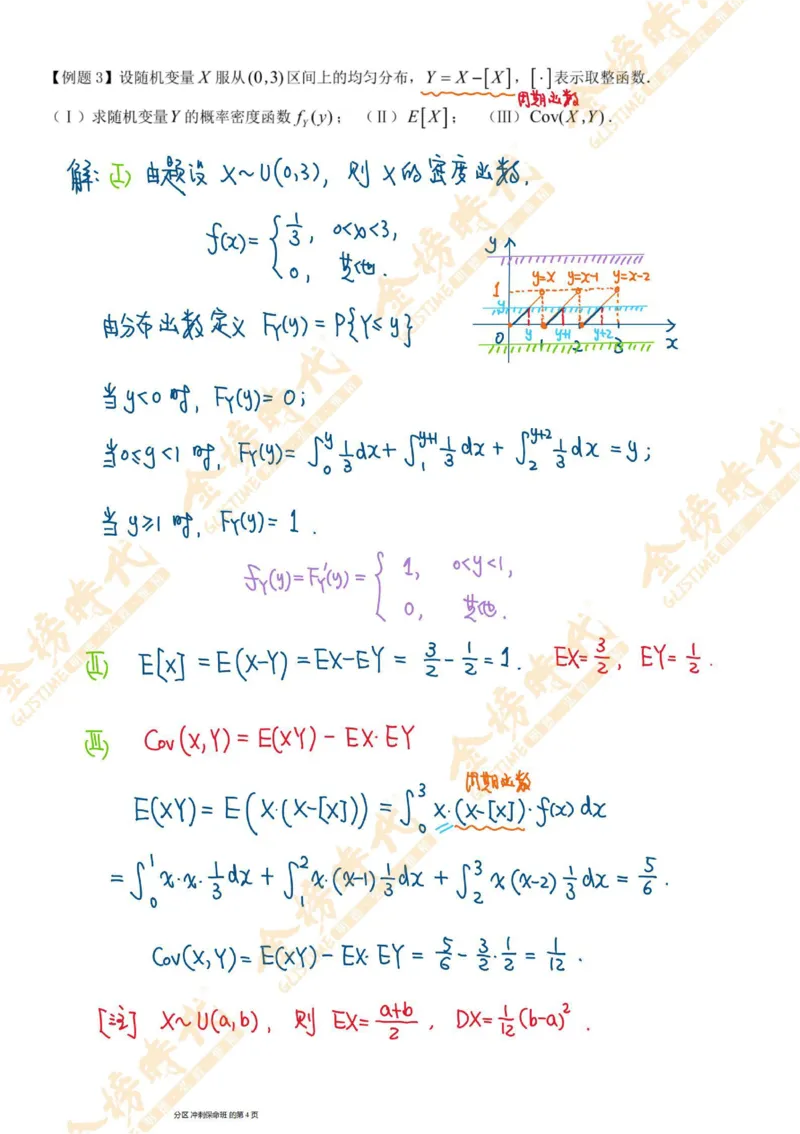 【例题3】设随机变量X服从(0,3)区间上的均匀分布，Y=X-[X]，[·]表示取整函数.
周期函数
(Ⅰ)求随机变量Y的概率密度函数f_Y(y)； (Ⅱ) E[X]； (Ⅲ) Cov(X,Y).
解: (Ⅰ) 由题设 X~U(0,3), 则 X的密度函数,
f(x)= { 1/3, 0<x<3,
0, 其他.
y
y=x y=x-1 y=x-2
1
y
0 y 1 y+1 2 y+2 3 x
由分布函数定义 F_Y(y)=P{Y≤y}
当y<0时, F_Y(y)=0;
当0≤y<1时, F_Y(y)=∫_0^y 1/3 dx+∫_1^{y+1} 1/3 dx+∫_2^{y+2} 1/3 dx=y;
当y≥1时, F_Y(y)=1.
f_Y(y)=F_Y'(y)= { 1, 0<y<1,
0, 其他.
(Ⅱ) E[X]=E(X-Y)=EX-EY=3/2-1/2=1. EX=3/2, EY=1/2.
(Ⅲ) Cov(X,Y)=E(XY)-EX·EY
周期函数
E(XY)=E(X·(X-[X]))=∫_0^3 x·(x-[x])·f(x)dx
=∫_0^1 x·x·1/3 dx+∫_1^2 x·(x-1)1/3 dx+∫_2^3 x(x-2)1/3 dx=5/6.
Cov(X,Y)=E(XY)-EX·EY=5/6-3/2·1/2=1/12.
[注] X~U(a,b), 则 EX=(a+b)/2, DX=1/12(b-a)^2.
分区 冲刺保命班 的第 4 页
金榜時代
GLISTIME